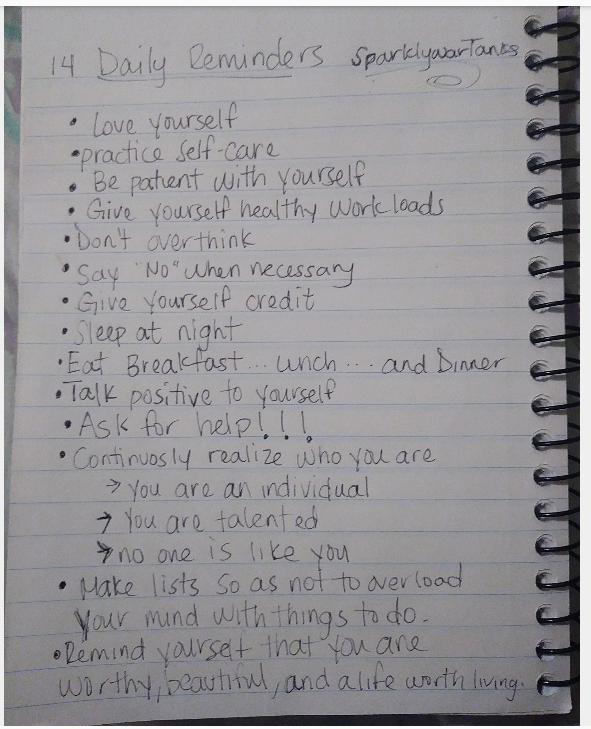 14 Daily Reminders SparklywarTanks
• Love yourself
• practice self-care
• Be patient with yourself
• Give yourself healthy workloads
• Don't overthink
• Say "No" when necessary
• Give yourself credit
• Sleep at night
• Eat Breakfast... unch... and Dinner
• Talk positive to yourself
• Ask for help!!!
• Continuosly realize who you are
→ You are an individual
→ You are talented
→ no one is like you
• Make lists so as not to overload
your mind with things to do.
• Remind yourself that you are
worthy, beautiful, and a life worth living.